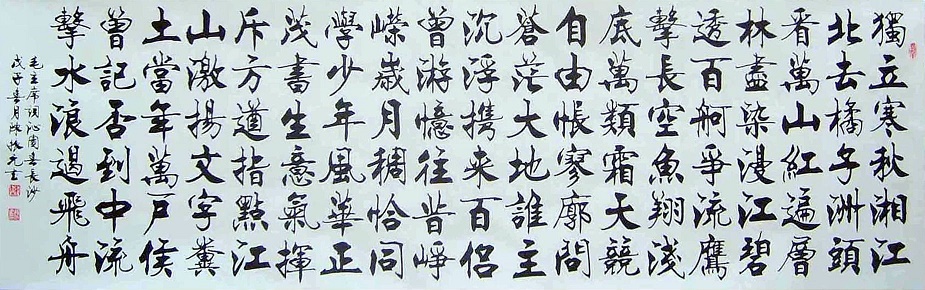 獨立寒秋湘江
北去橘子洲頭
看萬山紅遍層
林盡染漫江碧
透百舸爭流鷹
擊長空魚翔淺
底萬類霜天競
自由悵寥廓問
蒼茫大地誰主
沉浮携来百侶
曾游憶往昔崢
嶸歲月稠恰同
學少年風華正
茂書生意氣揮
斥方遒指點江
山激揚文字糞
土當年萬戶侯
曾記否到中流
擊水浪遏飛舟
毛主席詞沁園春長沙
戊子春月陳